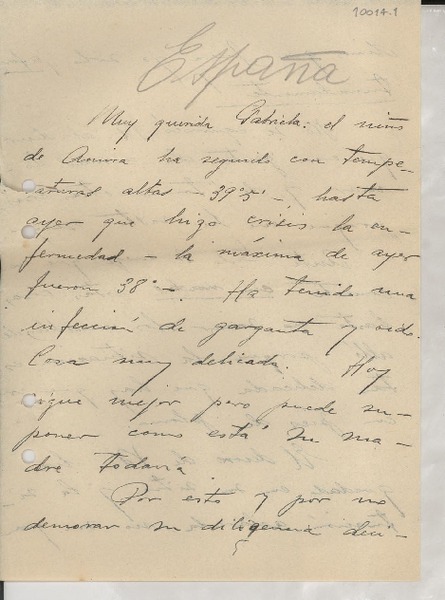 10014.1
España
Muy querida Gabriela: el niño
de Aurora ha seguido con tempe-
raturas altas - 39°5 -, hasta
ayer que hizo crisis la en-
fermedad - la máxima de ayer
fueron 38° -. Ha tenido una
infección de garganta y oido.
Cosa muy delicada. Hoy
sigue mejor pero puede su-
poner como está su ma-
dre todavía
Por esto y por no
demorar su diligencia deci-